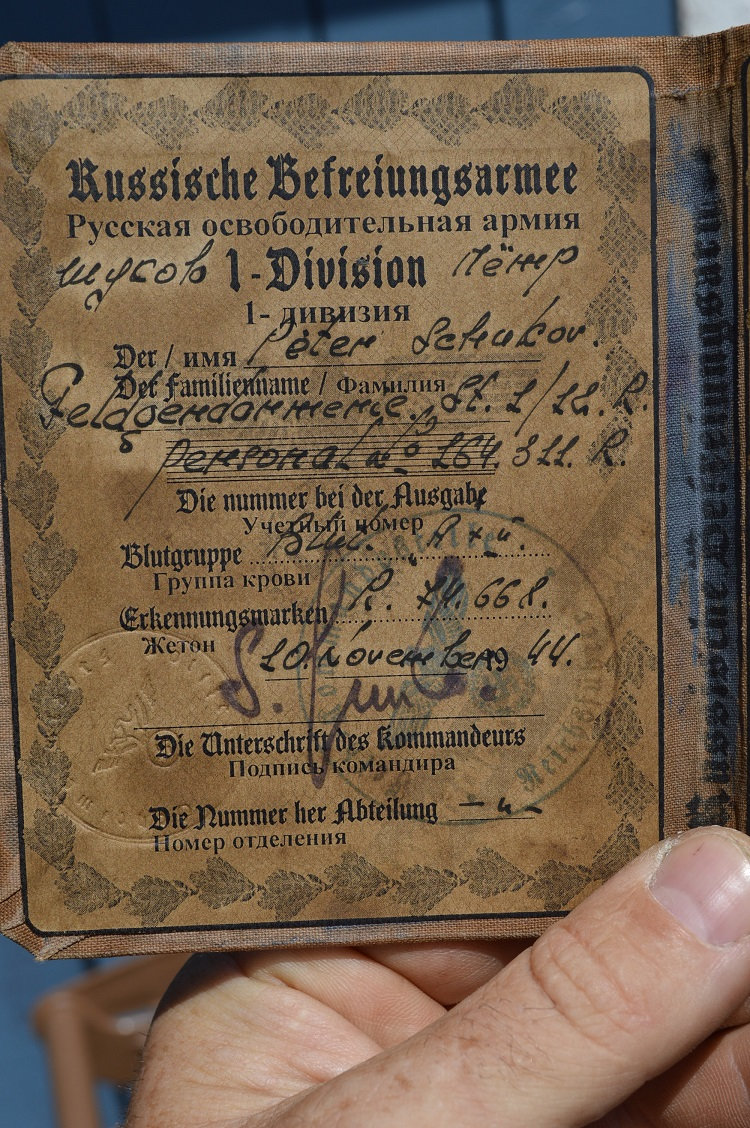 Russische Befreiungsarmee
Русская освободительная армия
Шусов 1-Division Пётр
1- дивизия
Der / имя Peter Schukov.
Der Familienname / Фамилия
Feldgendarmerie. St. 1/12. R.
Personal № 164. 311. R.
Die nummer bei der Ausgabe
Учетный номер
Blutgruppe
Группа крови
Erkennungsmarken R. 74.668.
Жетон
10. November 19 44.
Die Unterschrift des Kommandeurs
Подпись командира
Die Nummer her Abteilung
Номер отделения